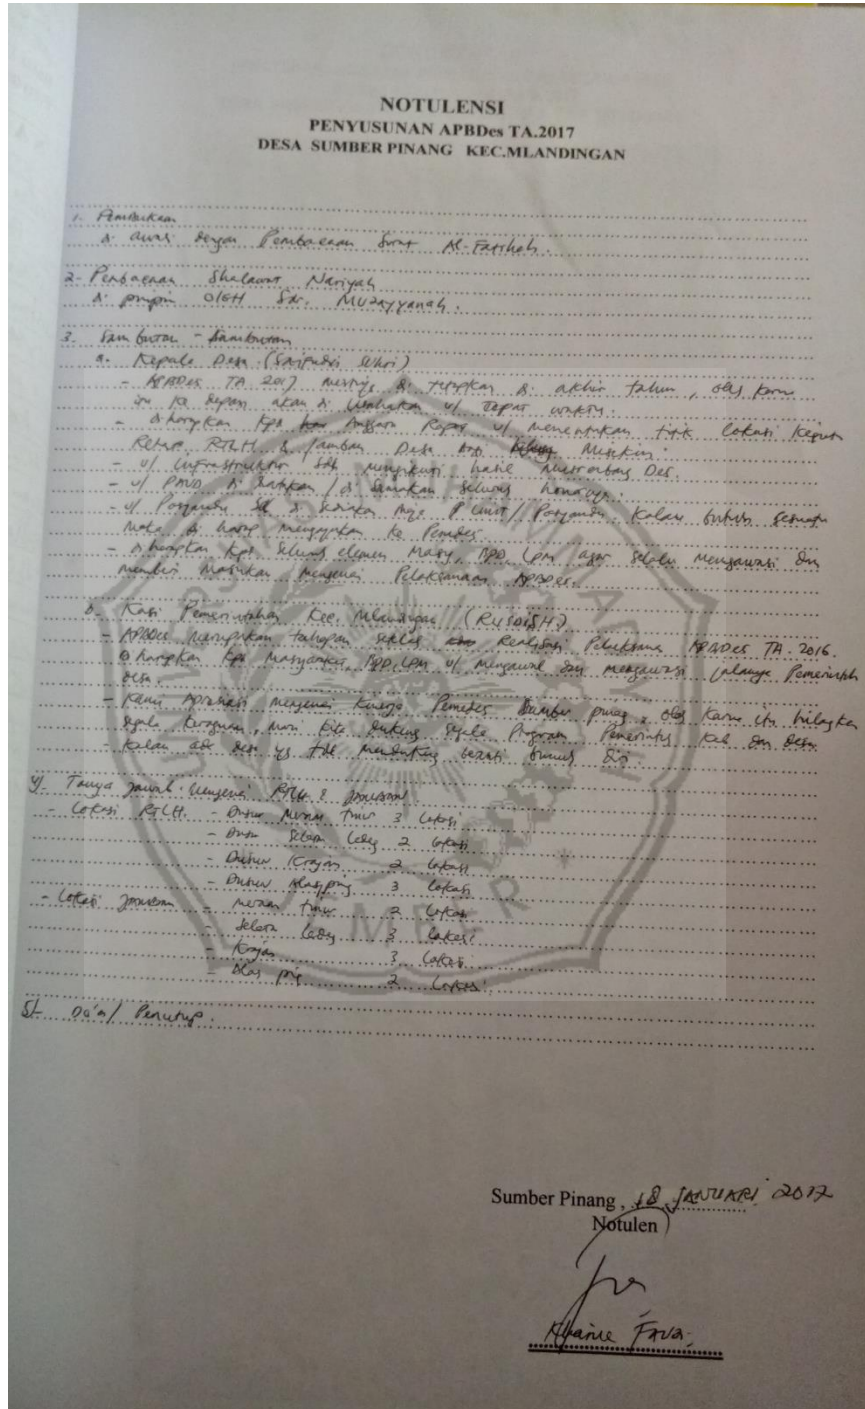 NOTULENSI
PENYUSUNAN APBDes TA.2017
DESA SUMBER PINANG KEC.MLANDINGAN
1. Pembukaan
di awali dengan Pembacaan Surat Al-Fatihah.
2- Pembacaan Shalawat Nariyah
di pimpin oleh Sdr. Muzayyanah.
3. Sambutan - Sambutan
a. Kepala Desa
- APBDes TA 2017 mestinya di tetapkan di akhir tahun, oleh karna
itu ke depan akan di usahakan u/ tepat waktu.
- di harapkan kpd Anggota Rapat u/ menentukan titik lokasi
RTLH & Jamban Desa Miskin.
- u/ Infrastruktur sdh mengikuti hasil Musrenbang Des.
- u/ PAUD di ratakan / di samakan seluruh honornya.
- u/ Posyandu Sdh di sediakan meja Posyandu. Kalau butuh sesuatu
maka di harap mengajukan ke Pemdes.
- di harapkan kpd seluruh elemen Masy, BPD, LPM agar selalu mengawasi dan
memberi masukan mengenai Pelaksanaan APBDes.
b. Kasi Pemerintahan Kec. Mlandingan
- APBDes merupakan tahapan setelah Realisasi Pelaksana APBDes TA. 2016.
di harapkan kpd Masyarakat, BPD, LPM u/ mengawal dan mengawasi jalanya Pemerintah
Desa.
- Kami Apresiasi mengenai Kinerja Pemdes Sumber pinang, oleh karna itu hilangkan
segala keraguan, mari kita dukung segala Program Pemerintah Kab dan Desa.
- Kalau ada desa yg tdk mendukung berarti bunuh Diri
4/- Tanya Jawab Mengenai RTLH & Jamban
- Lokasi RTLH. - Dusun Meran timur 3 lokasi
- Dusun Selatan 2 lokasi
- Dusun Krajan 2 lokasi
- Dusun 3 lokasi
- Lokasi Jamban - Meran timur 2 lokasi
- Selatan 3 lokasi
- Krajan 3 lokasi
- 2 lokasi
5/- Do'a / Penutup.
Sumber Pinang, 18 JANUARI 2017
Notulen
UNIVERSITAS MUHAMMADIYAH
JEMBER